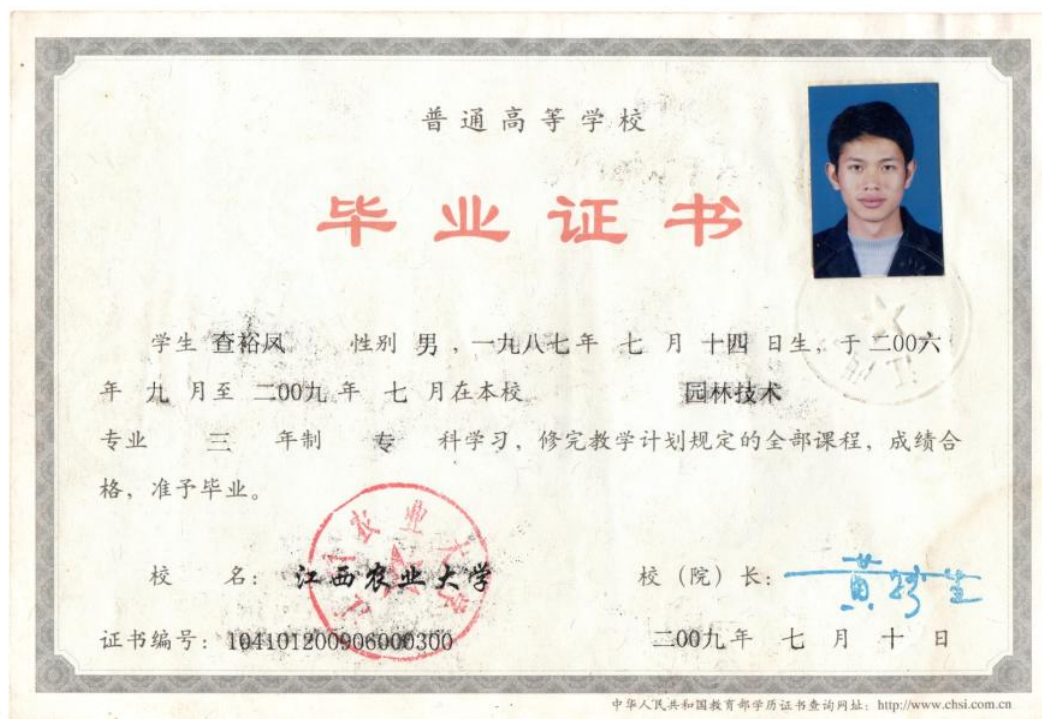 普通高等学校
毕业证书
学生 查裕凤 性别 男 ，一九八七年 七 月 十四 日生，于 二00六
年 九 月至 二00九 年 七 月在本校 园林技术
专业 三 年制 专 科学习，修完教学计划规定的全部课程，成绩合
格，准予毕业。
校 名： 江西农业大学 校（院）长：
证书编号：104101200906000300 二00九年 七 月 十 日
中华人民共和国教育部学历证书查询网址：http://www.chsi.com.cn